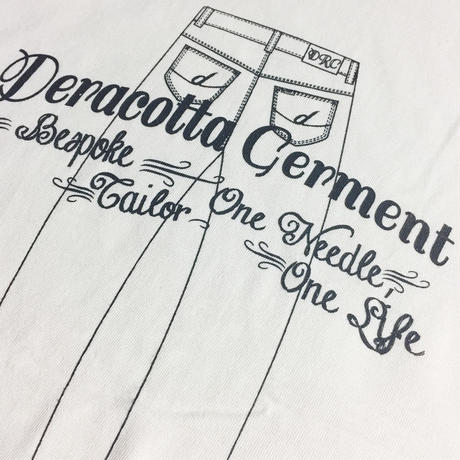 DRC
d
d
Deracotta Germent
Bespoke
Tailor
One Needle,
One Life